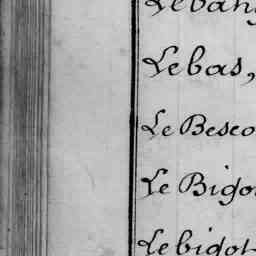 Leban
Lebas,
Le Besco
Le Bigo
Lebigot